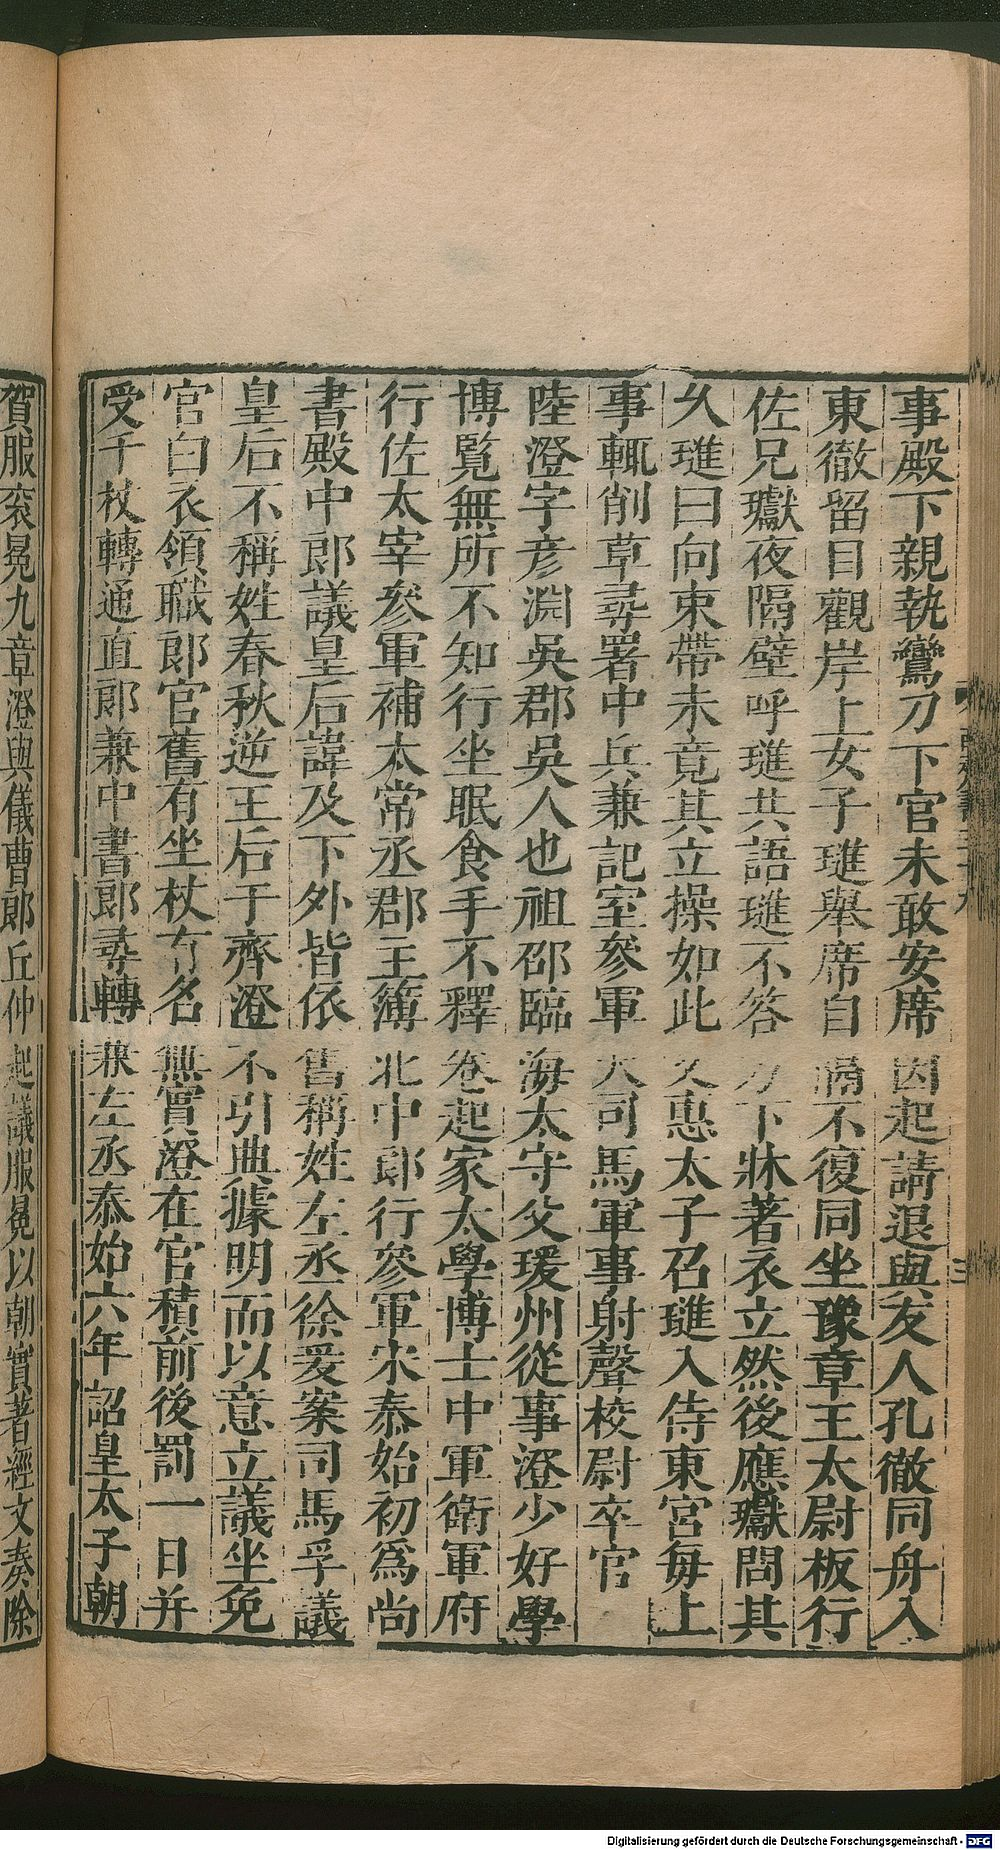 事殿下親執鸞刀下官未敢安席因起請退與友人孔徹同舟入
東徹留目觀岸上女子璡舉席自隔不復同坐豫章王太尉板行
佐兄瓛夜隔壁呼璡共語璡不答方下牀著衣立然後應瓛問其
久璡曰向束帶未竟其立操如此文惠太子召璡入侍東宮每上
事輒削草尋署中兵兼記室參軍大司馬軍事射聲校尉卒官
陸澄字彦淵吳郡吳人也祖邵臨海太守父瑗州從事澄少好學
博覧無所不知行坐眠食手不釋卷起家太學博士中軍衛軍府
行佐太宰參軍補太常丞郡主簿北中郎行參軍宋泰始初爲尚
書殿中郎議皇后諱及下外皆依舊稱姓左丞徐爰案司馬孚議
皇后不稱姓春秋逆王后于齊澄不引典據明而以意立議坐免
官白衣領職郎官舊有坐杖有名無實澄在官積前後罰一日并
受千杖轉通直郎兼中書郎尋轉兼左丞泰始六年詔皇太子朝
賀服衮冕九章澄與儀曹郎丘仲起議服冕以朝實著經文秦除
Digitalisierung gefördert durch die Deutsche Forschungsgemeinschaft - DFG